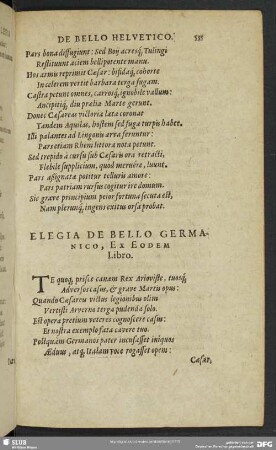 DE BELLO HELVETICO.
Pars bona diffugiunt: Sed Boij acresq́; Tulingi
Restituunt aciem bellipotente manu.
Hos armis reprimit Cæsar: bisdaq́; cohorte
In celerem vertit barbara terga fugam.
Castra petunt omnes, carrosq́; ignobile vallum:
Ancipitiq́; diu prælia Marte gerunt.
Donec Cæsareas victoria læta coronat
Tandem Aquilas, hostem sed fuga turpis habet.
Illi palantes ad Lingonis arva feruntur:
Pars etiam Rheni littora nota petunt.
Sed trepido à cursu sub Cæsaris ora retracti,
Flebile supplicium, quod meruere, luunt.
Pars assignata potitur telluris amore:
Pars patriam rursus cogitur ire domum.
Sic grave principium peior fortuna secuta est,
Nam plerunq́; ingens exitus orsa probat.
ELEGIA DE BELLO GERMA-
NICO, EX EODEM
Libro.
TE quoq́; priscæ canam Rex Arioviste, tuosq́;
Adversos casus, & grave Martis opus:
Quando Cæsareis victus legionibus olim
Vertisti Arverno terga pudenda solo.
Est operæ pretium veteres cognoscere casus:
Et nostra exemplo fata cavere tuo.
Postquàm Germanos pater incusasset iniquos
Æduus, atq́; Italam voce rogasset opem:
Cæsar,
SLUB